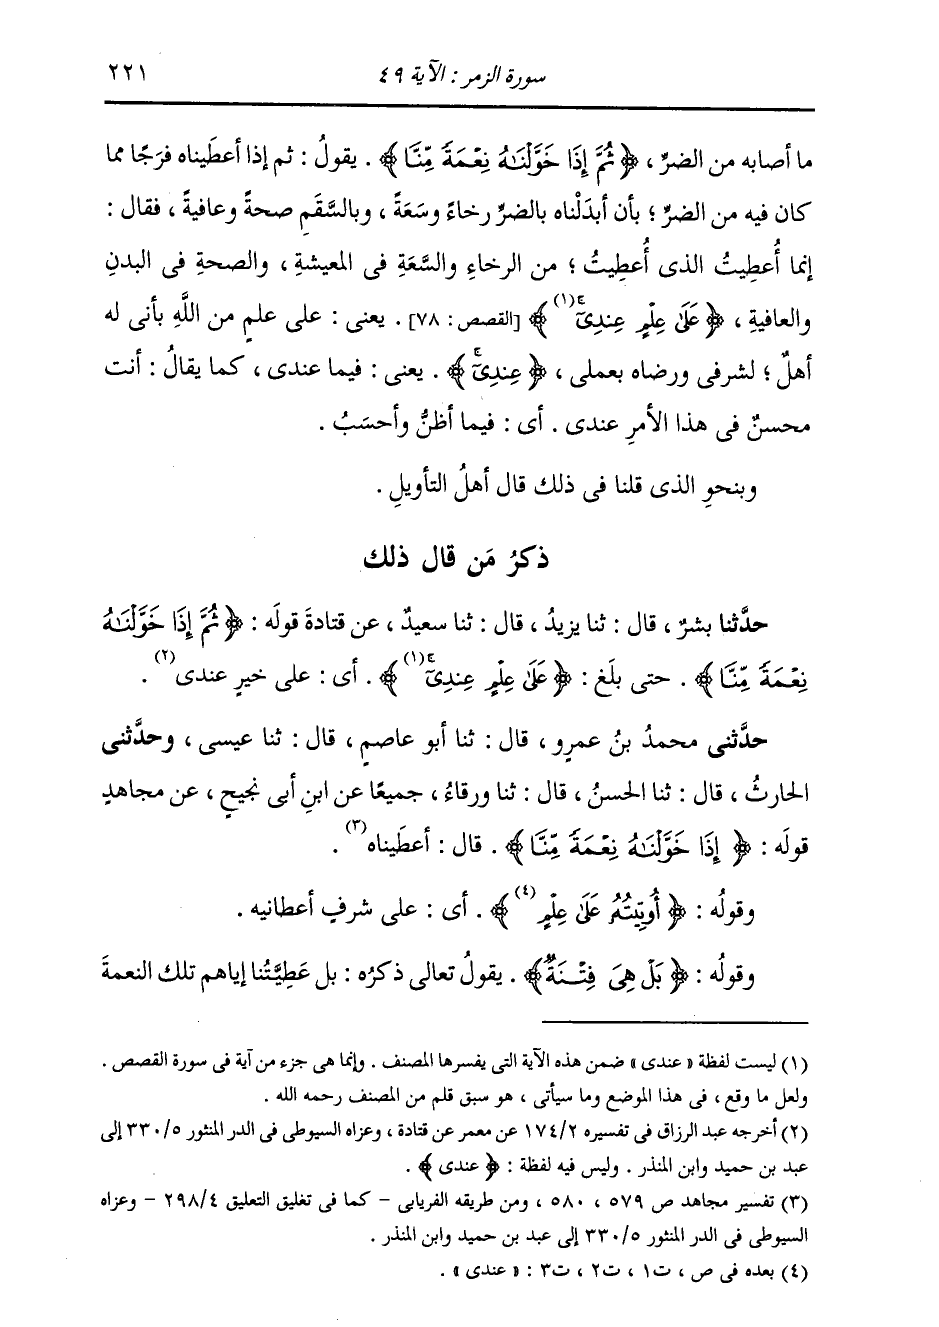 سورة الزمر : الآية ٤٩ ٢٢١
ما أصابه من الضرِّ ، ﴿ ثُمَّ إِذَا خَوَّلْنَاهُ نِعْمَةً مِّنَّا ﴾ . يقولُ : ثم إذا أعطَيناه فرَجًا مما
كان فيه من الضرِّ ؛ بأن أبدَلْناه بالضرِّ رخاءً وسَعَةً ، وبالسَّقَمِ صحةً وعافيةً ، فقال :
إنما أُعطِيتُ الذى أُعطِيتُ ؛ من الرخاءِ والسَّعَةِ فى المعيشةِ ، والصحةِ فى البدنِ
والعافيةِ ، ﴿ عَلَىٰ عِلْمٍ عِندِىٓۚ (١) ﴾ [القصص : ٧٨] . يعنى : على علمٍ من اللَّهِ بأنى له
أهلٌ ؛ لشرفى ورضاه بعملى ، ﴿ عِندِىٓۚ ﴾ . يعنى : فيما عندى ، كما يقالُ : أنت
محسنٌ فى هذا الأمرِ عندى . أى : فيما أظنُّ وأحسَبُ .
وبنحوِ الذى قلنا فى ذلك قال أهلُ التأويلِ .
ذكرُ مَن قال ذلك
حدَّثنا بشرٌ ، قال : ثنا يزيدُ ، قال : ثنا سعيدٌ ، عن قتادةَ قولَه : ﴿ ثُمَّ إِذَا خَوَّلْنَاهُ
نِعْمَةً مِّنَّا ﴾ . حتى بلَغ : ﴿ عَلَىٰ عِلْمٍ عِندِىٓۚ (١) ﴾ . أى : على خيرٍ عندى (٢) .
حدَّثنى محمدُ بنُ عمرٍو ، قال : ثنا أبو عاصمٍ ، قال : ثنا عيسى ، وحدَّثنى
الحارثُ ، قال : ثنا الحسنُ ، قال : ثنا ورقاءُ ، جميعًا عن ابنِ أبى نجيحٍ ، عن مجاهدٍ
قولَه : ﴿ إِذَا خَوَّلْنَاهُ نِعْمَةً مِّنَّا ﴾ . قال : أعطَيناه (٣) .
وقولُه : ﴿ أُوتِيتُهُۥ عَلَىٰ عِلْمٍ (٤) ﴾ . أى : على شرفٍ أعطانيه .
وقولُه : ﴿ بَلْ هِىَ فِتْنَةٌ ﴾ . يقولُ تعالى ذكرُه : بل عَطِيَّتُنا إياهم تلك النعمةَ
(١) ليست لفظة « عندى » ضمن هذه الآية التى يفسرها المصنف . وإنما هى جزء من آية فى سورة القصص .
ولعل ما وقع ، فى هذا الموضع وما سيأتى ، هو سبق قلم من المصنف رحمه الله .
(٢) أخرجه عبد الرزاق فى تفسيره ١٧٤/٢ عن معمر عن قتادة ، وعزاه السيوطى فى الدر المنثور ٣٣٠/٥ إلى
عبد بن حميد وابن المنذر . وليس فيه لفظة : ﴿ عندى ﴾ .
(٣) تفسير مجاهد ص ٥٧٩ ، ٥٨٠ ، ومن طريقه الفريابى – كما فى تغليق التعليق ٢٩٨/٤ – وعزاه
السيوطى فى الدر المنثور ٣٣٠/٥ إلى عبد بن حميد وابن المنذر .
(٤) بعده فى ص ، ت١ ، ت٢ ، ت٣ : « عندى » .